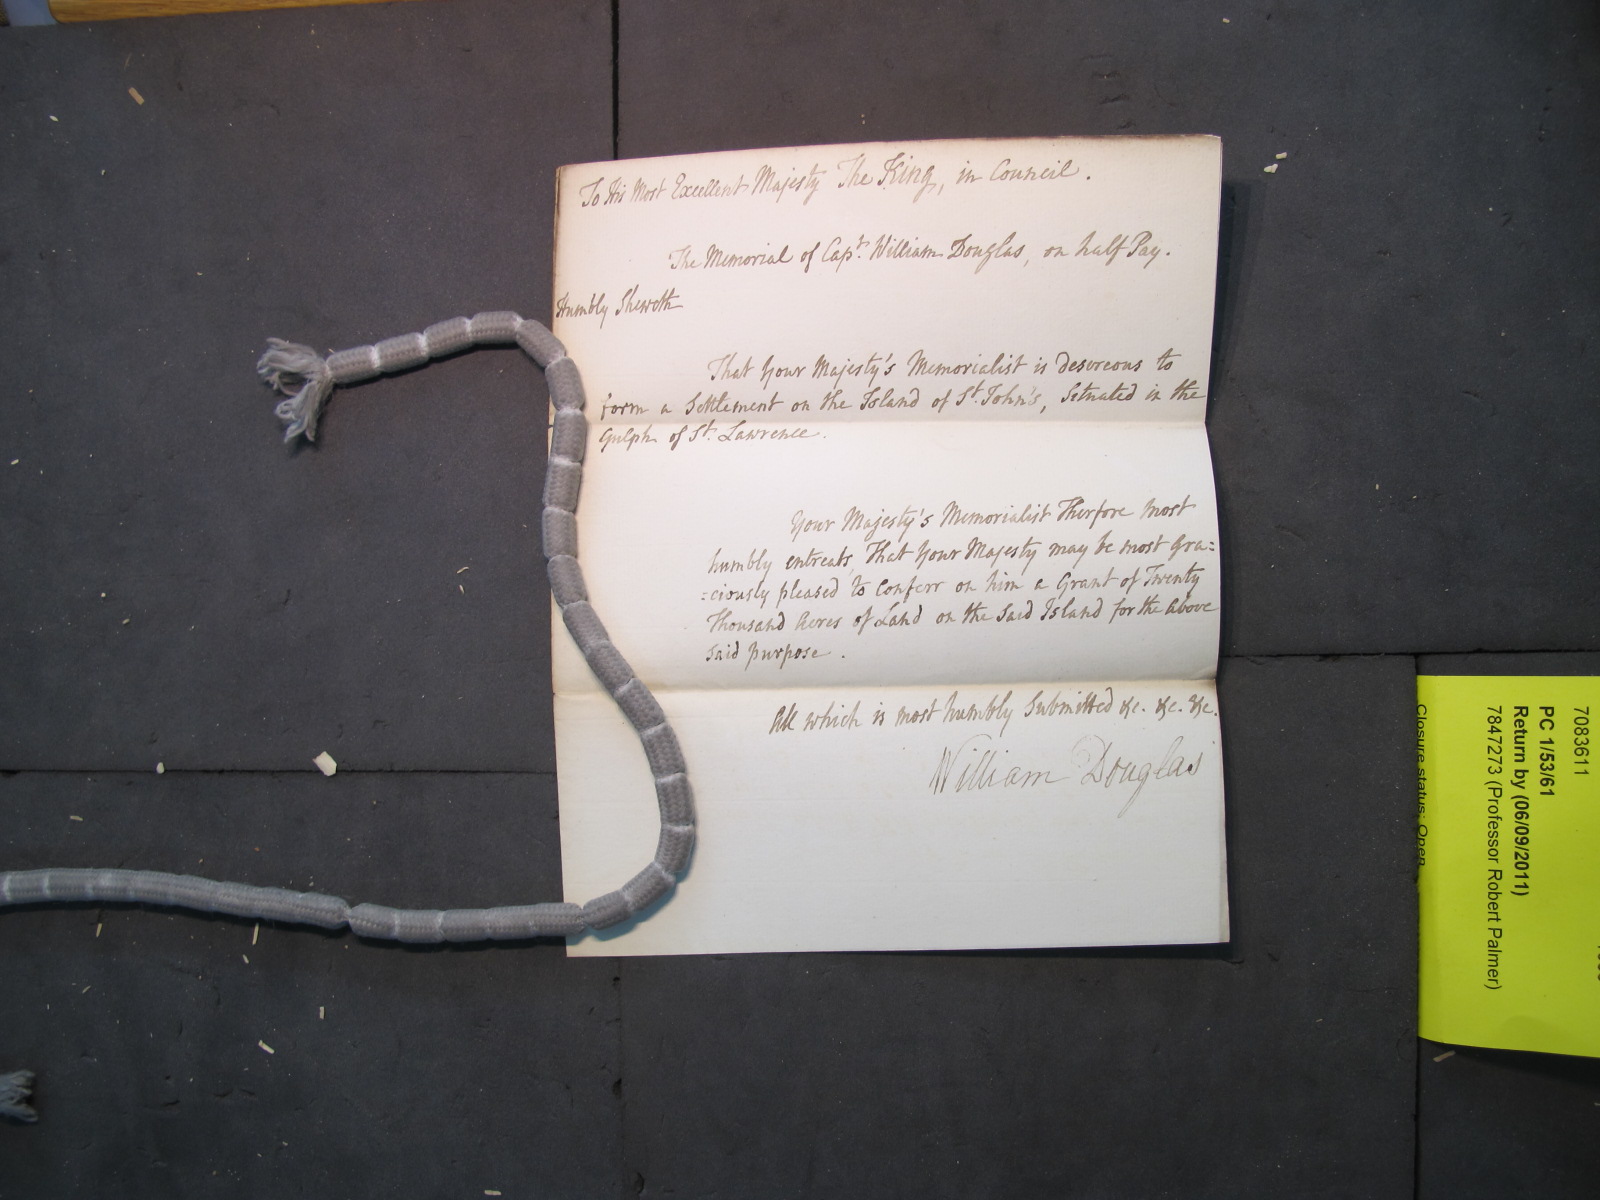 To His Most Excellent Majesty The King, in Council.
The Memorial of Capt. William Douglas, on half Pay.
Humbly Sheweth
That Your Majesty's Memorialist is desereous to
form a Settlement on the Island of St. John's, Setuated in the
Gulph of St. Lawrence.
Your Majesty's Memorialist Therfore most
humbly entreats, That Your Majesty may be most Gra=
=ciously pleased to Conferr on him a Grant of Twenty
Thousand Acres of Land on the Said Island for the Above
Said purpose.
All which is most humbly Submitted &c. &c. &c.
William Douglas
7083611
PC 1/53/61
Return by (06/09/2011)
7847273 (Professor Robert Palmer)
Closure status: Open